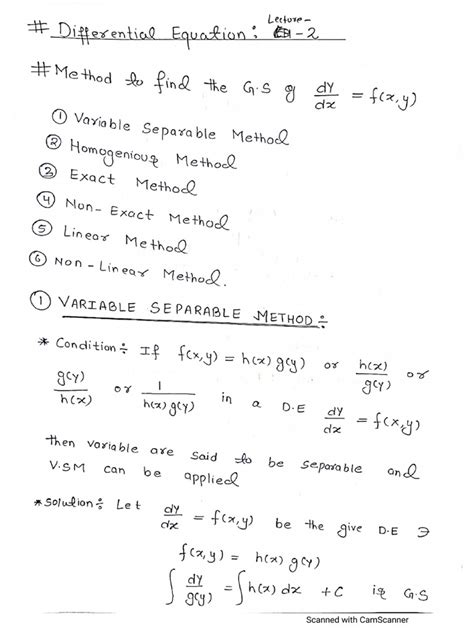 Lecture-
# Differential Equation: -2
# Method to find the G.S of dy/dx = f(x,y)
① Variable Separable Method
② Homogeniouq Method
③ Exact Method
④ Non-Exact Method
⑤ Linear Method
⑥ Non-Linear Method.
① VARIABLE SEPARABLE METHOD ÷
* Condition ÷ If f(x,y) = h(x) g(y) or h(x)/g(y) or
g(y)/h(x) or 1/h(x) g(y) in a D.E dy/dx = f(x,y)
then variable are said to be separable and
V.SM can be applied
* Solution ÷ Let dy/dx = f(x,y) be the give D.E ∋
f(x,y) = h(x) g(y)
∫ dy/g(y) = ∫ h(x) dx + C iq G.S
Scanned with CamScanner